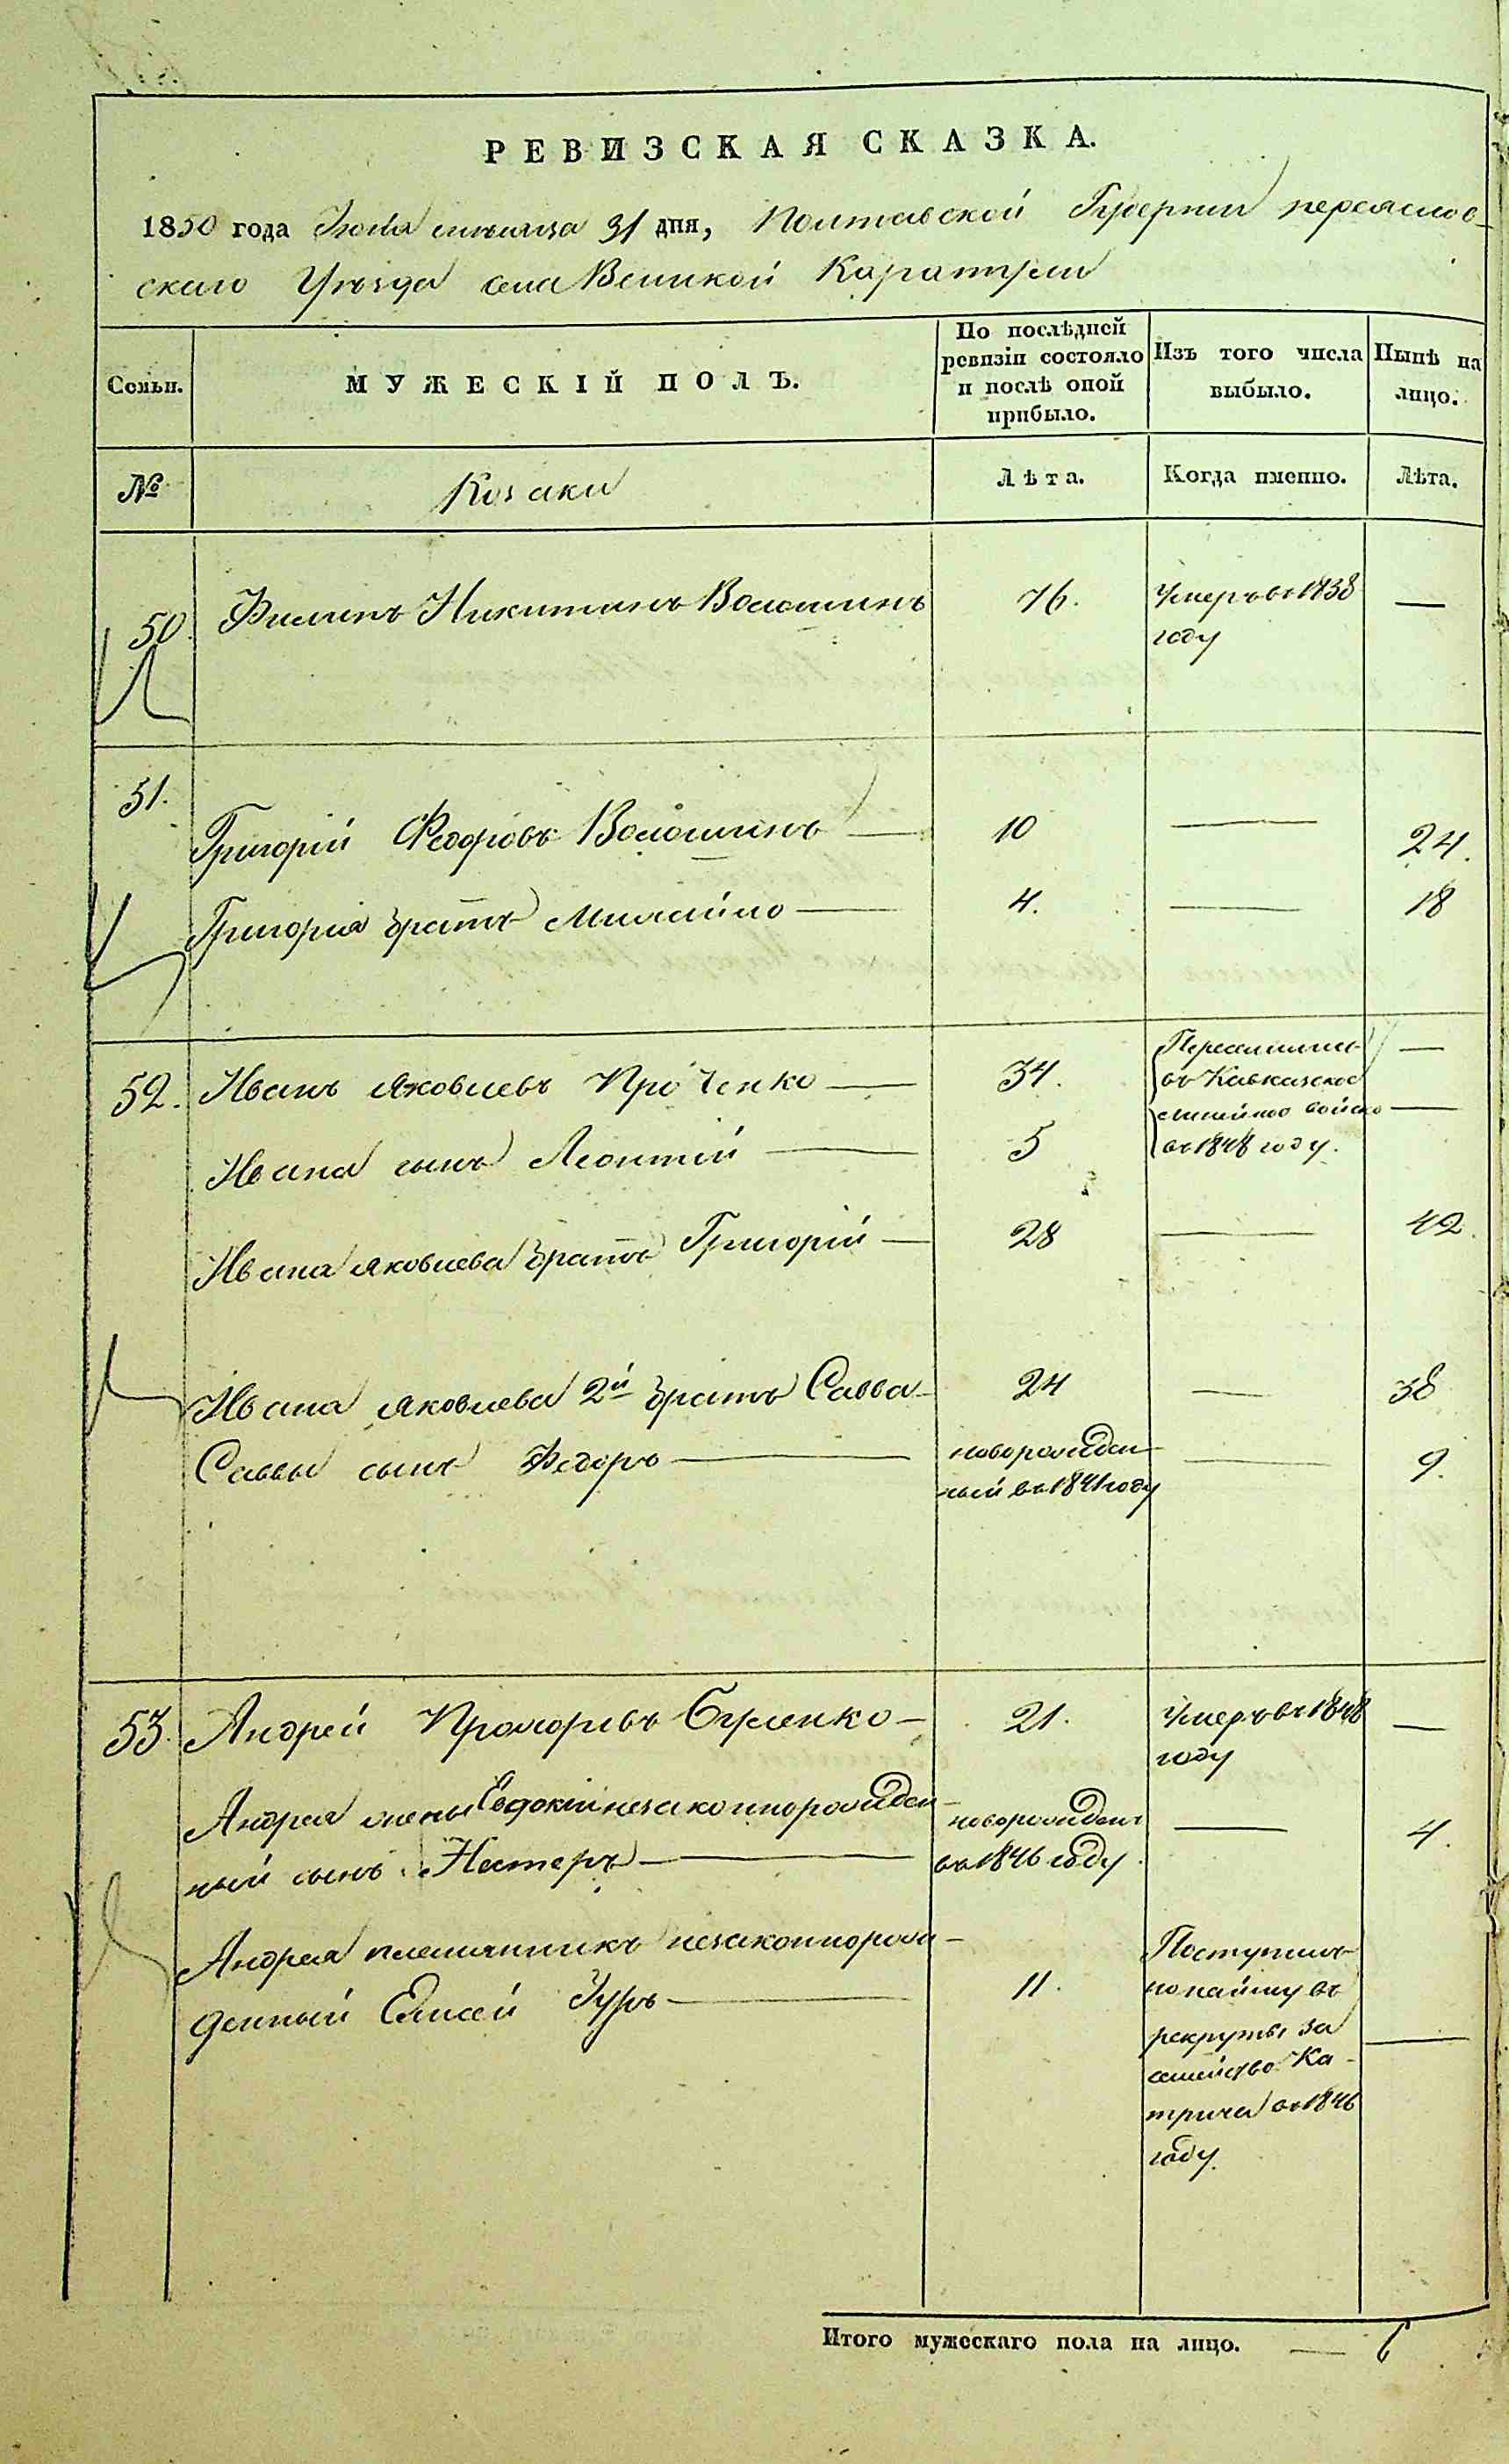 РЕВИЗСКАЯ СКАЗКА.
1850 года Июля месяца 31 дня, Полтавской Губернии переяслов-
скаго Уезда села Великой Каратули
Семьи.
МУЖЕСКІЙ ПОЛЪ.
По послѣдней ревизіи состояло и послѣ оной прибыло.
Изъ того числа выбыло.
Нынѣ на лицо.
№
Козаки
Лѣта.
Когда именно.
Лѣта.
50. Филипъ Никитинъ Волошинъ 76. Умеръ въ 1838 —
году
51.
Григорій Федоровъ Волошинъ — 10 — 24.
Григорія братъ Михайло — 4. — 18
52. Иванъ Яковлевъ Проценко — 34. —
Ивана сынъ Леонтій — 5 —
въ Кавказское
линейное войско
въ 1848 году.
Ивана Яковлева братъ Григорій — 28 — 42.
Ивана Яковлева 2й братъ Савва 24 — 38
Саввы сынъ Федоръ — новорожден-
ный въ 1841 году — 9.
53. Андрей Прохоровъ — 21. Умеръ въ 1848 —
году
Андрея жены Евдокіи незаконнорожден-
ный сынъ Нестеръ — новорожденъ
въ 1846 году. — 4.
Андрея племянникъ незаконнорож-
денный Елисей — 11.
Поступилъ
по найму въ
рекруты за —
семейство Ка-
трича въ 1846
году.
Итого мужескаго пола на лицо. — 6